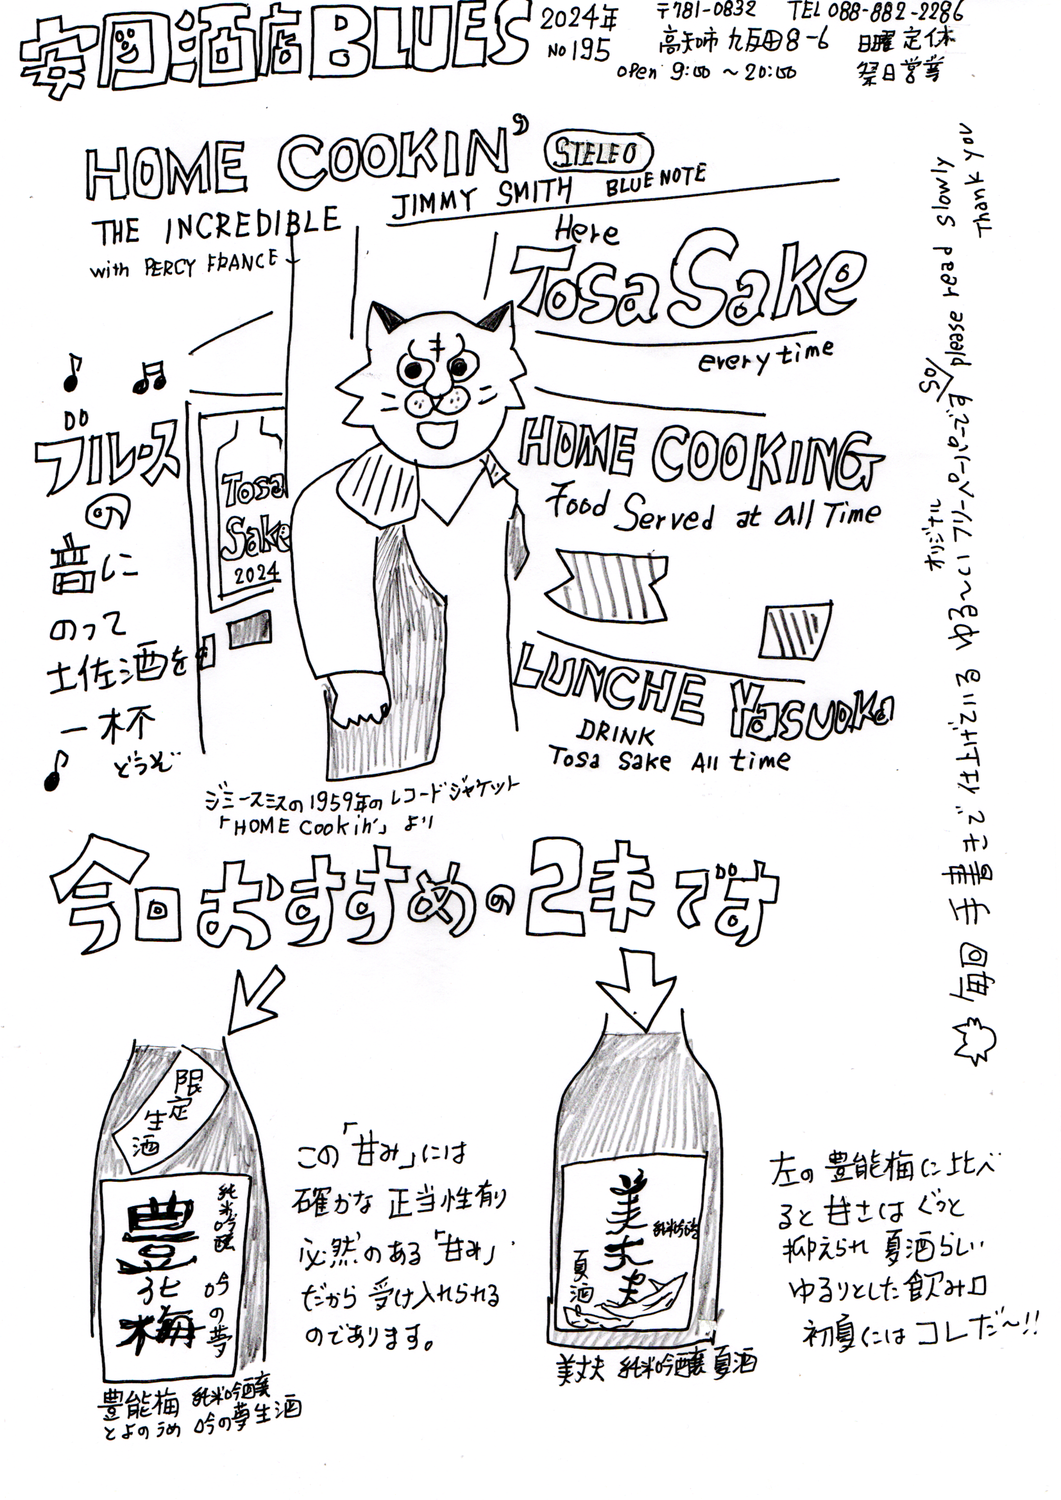 安岡酒店BLUES
2024年
No 195
〒781-0832 TEL 088-882-2286
高知市九反田8-6 日曜定休
open 9:00 〜 20:00 祭日営業
HOME COOKIN' STELEO
JIMMY SMITH BLUE NOTE
THE INCREDIBLE
with PERCY FRANCE
Here
Tosa Sake
every time
HOME COOKING
Food Served at all Time
LUNCHE Yasuoka
DRINK
Tosa Sake All time
Tosa
Sake
2024
ブルース
の
音に
のって
土佐酒を
一杯
どうぞ
ジミースミスの1959年のレコードジャケット
「HOME Cookin'」より
毎回手書きで仕上げている ゆる〜いフリーペーパーです please read slowly
オリジナル
so/
Thank you
今回おすすめの2本です
限定
生酒
純米吟醸 吟の夢
豊能梅
豊能梅 純米吟醸
とよのうめ 吟の夢生酒
この「甘み」には
確かな 正当性有り
必然のある「甘み」
だから 受け入れられる
のであります。
美丈夫
純米吟醸
夏酒
美丈夫 純米吟醸 夏酒
左の豊能梅に比べ
ると 甘さは ぐっと
抑えられ 夏酒らしい
ゆるりとした飲み口
初夏にはコレだ〜!!